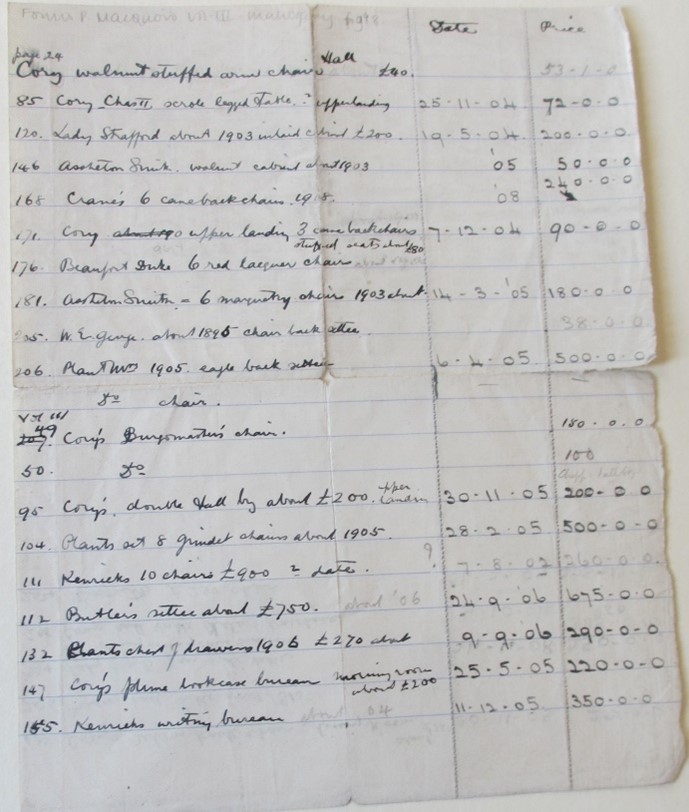 Date Price
page 24
Cory walnut stuffed arm chair Hall £40. 53-1-0
85 Cory Chas II, scrole legged table, ? upper landing 25.11.04 72-0-0
120. Lady Strafford about 1903 inlaid £200. 19.5.04. 200-0-0
146 Assheton Smith. walnut cabinet about 1903 '05 50.0.0
168 Crane's 6 cane back chairs. 1908. '08 240.0.0
171. Cory upper landing 3 cane back chairs 7-12-04 90-0-0
stuffed seats about £80
176. Beaufort Duke 6 red lacquer chairs
181. Assheton Smith = 6 marquetry chairs 1903 about 14-3-'05 180-0-0
W. E. George. about 1895 chair back settee. 38-0-0.
206. Plant Mrs 1905. eagle back settee 6.4.05. 500-0-0
Do chair.
49 Cory's Burgomaster's chair. 150.0.0
50. Do 100
95 Cory's, double Hall by about £200. upper landing 30-11-05 200-0-0
104. Plants set 8 chairs about 1905. 28.2.05. 500-0-0
111 Kenricks 10 chairs £900 ? date. ? 7-8-02 260-0-0.
112 Butler's settee about £750. about '06 24.9.'06 675-0-0
132 Plants chest of drawers 1906 £270 about 9-9.'06 290-0-0
147 Cory's bookcase bureau morning room 25.5.05 220-0-0
about £200
155. Kenricks writing bureau about 04 11.12.05. 350.0.0